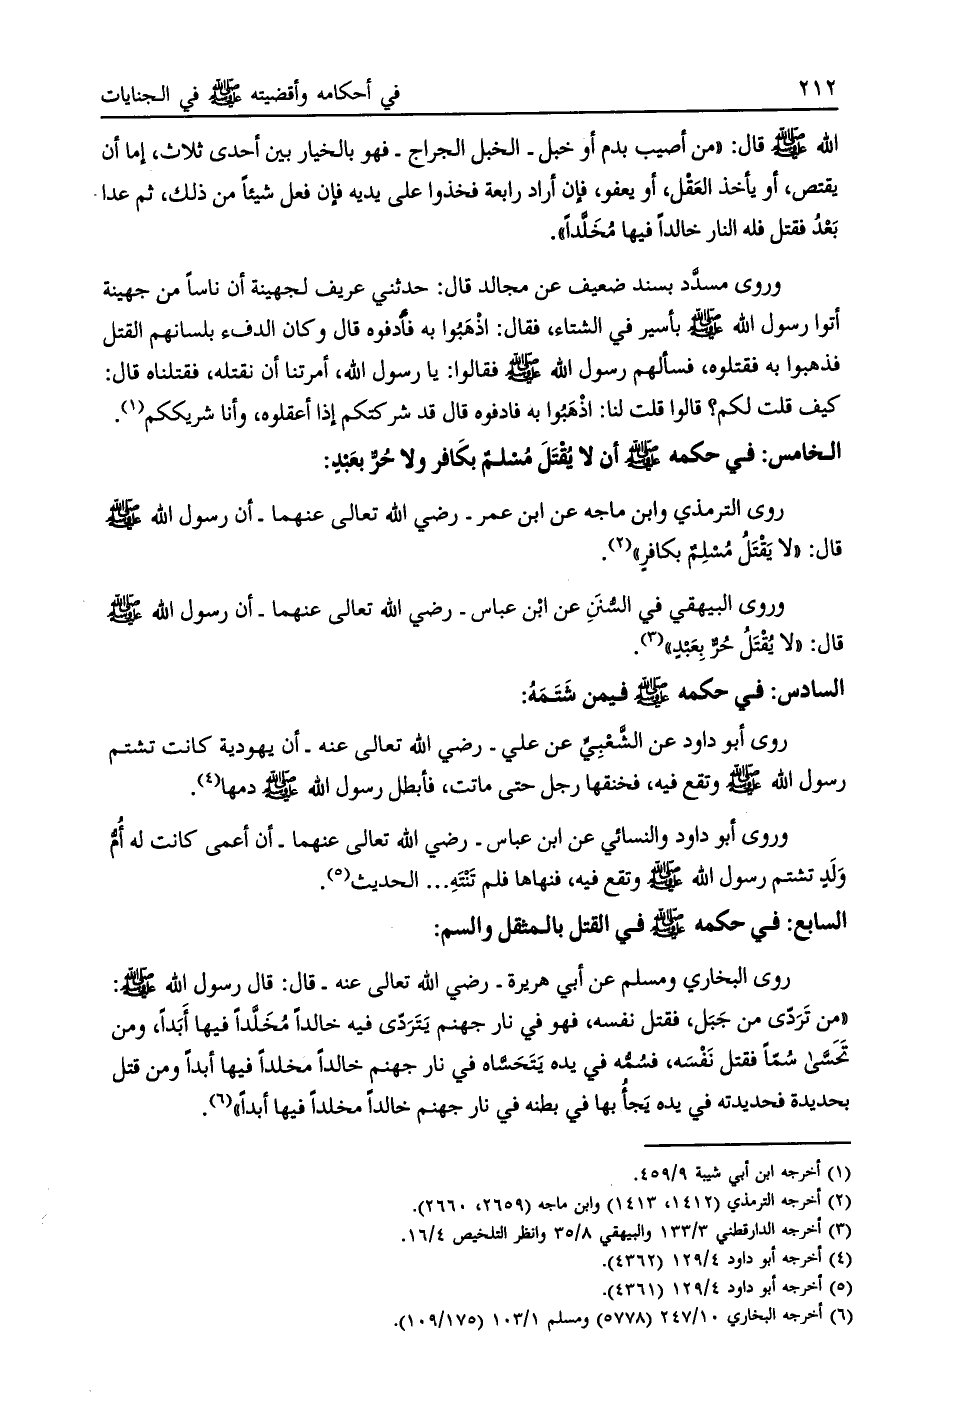 ٢١٢
في أحكامه وأقضيته ﷺ في الجنايات
الله ﷺ قال: «من أصيب بدم أو خبل ـ الخبل الجراج ـ فهو بالخيار بين أحدى ثلاث، إما أن
يقتص، أو يأخذ العَقْل، أو يعفو، فإن أراد رابعة فخذوا على يديه فإن فعل شيئاً من ذلك، ثم عدا
بَعْدُ فقتل فله النار خالداً فيها مُخَلَّداً».
وروى مسدَّد بسند ضعيف عن مجالد قال: حدثني عريف لجهينة أن ناساً من جهينة
أتوا رسول الله ﷺ بأسير في الشتاء، فقال: اذْهَبُوا به فأدفوه قال وكان الدفء بلسانهم القتل
فذهبوا به فقتلوه، فسألهم رسول الله ﷺ فقالوا: يا رسول الله، أمرتنا أن نقتله، فقتلناه قال:
كيف قلت لكم؟ قالوا قلت لنا: اذْهَبُوا به فادفوه قال قد شركتكم إذا أعقلوه، وأنا شريككم(١).
الخامس: في حكمه ﷺ أن لا يُقْتَلَ مُسْلمٌ بكَافر ولا حُرٌّ بعَبْدٍ:
روى الترمذي وابن ماجه عن ابن عمر ـ رضي الله تعالى عنهما ـ أن رسول الله ﷺ
قال: «لا يَقْتَلُ مُسْلِمٌ بكافرٍ»(٢).
وروى البيهقي في السُّنَنِ عن ابْن عباس ـ رضي الله تعالى عنهما ـ أن رسول الله ﷺ
قال: «لا يُقْتَلُ حُرٌّ بِعَبْدٍ»(٣).
السادس: في حكمه ﷺ فيمن شَتَمَهُ:
روى أبو داود عن الشَّعْبِيِّ عن علي ـ رضي الله تعالى عنه ـ أن يهودية كانت تشتم
رسول الله ﷺ وتقع فيه، فخنقها رجل حتى ماتت، فأبطل رسول الله ﷺ دمها(٤).
وروى أبو داود والنسائي عن ابن عباس ـ رضي الله تعالى عنهما ـ أن أعمى كانت له أُمُّ
وَلَدٍ تشتم رسول الله ﷺ وتقع فيه، فنهاها فلم تَنْتَهِ... الحديث(٥).
السابع: في حكمه ﷺ في القتل بالمثقل والسم:
روى البخاري ومسلم عن أبي هريرة ـ رضي الله تعالى عنه ـ قال: قال رسول الله ﷺ:
«من تَرَدّى من جَبَل، فقتل نفسه، فهو في نار جهنم يَتَرَدّى فيه خالداً مُخَلَّداً فيها أَبَداً، ومن
تَحَسَّىٰ سُمّاً فقتل نَفْسَه، فسُمُّه في يده يَتَحَسَّاه في نار جهنم خالداً مخلداً فيها أبداً ومن قتل
بحديدة فحديدته في يده يَجأُ بها في بطنه في نار جهنم خالداً مخلداً فيها أبداً»(٦).
(١) أخرجه ابن أبي شيبة ٤٥٩/٩.
(٢) أخرجه الترمذي (١٤١٢، ١٤١٣) وابن ماجه (٢٦٥٩، ٢٦٦٠).
(٣) أخرجه الدارقطني ١٣٣/٣ والبيهقي ٣٥/٨ وانظر التلخيص ١٦/٤.
(٤) أخرجه أبو داود ١٢٩/٤ (٤٣٦٢).
(٥) أخرجه أبو داود ١٢٩/٤ (٤٣٦١).
(٦) أخرجه البخاري ٢٤٧/١٠ (٥٧٧٨) ومسلم ١٠٣/١ (١٠٩/١٧٥).